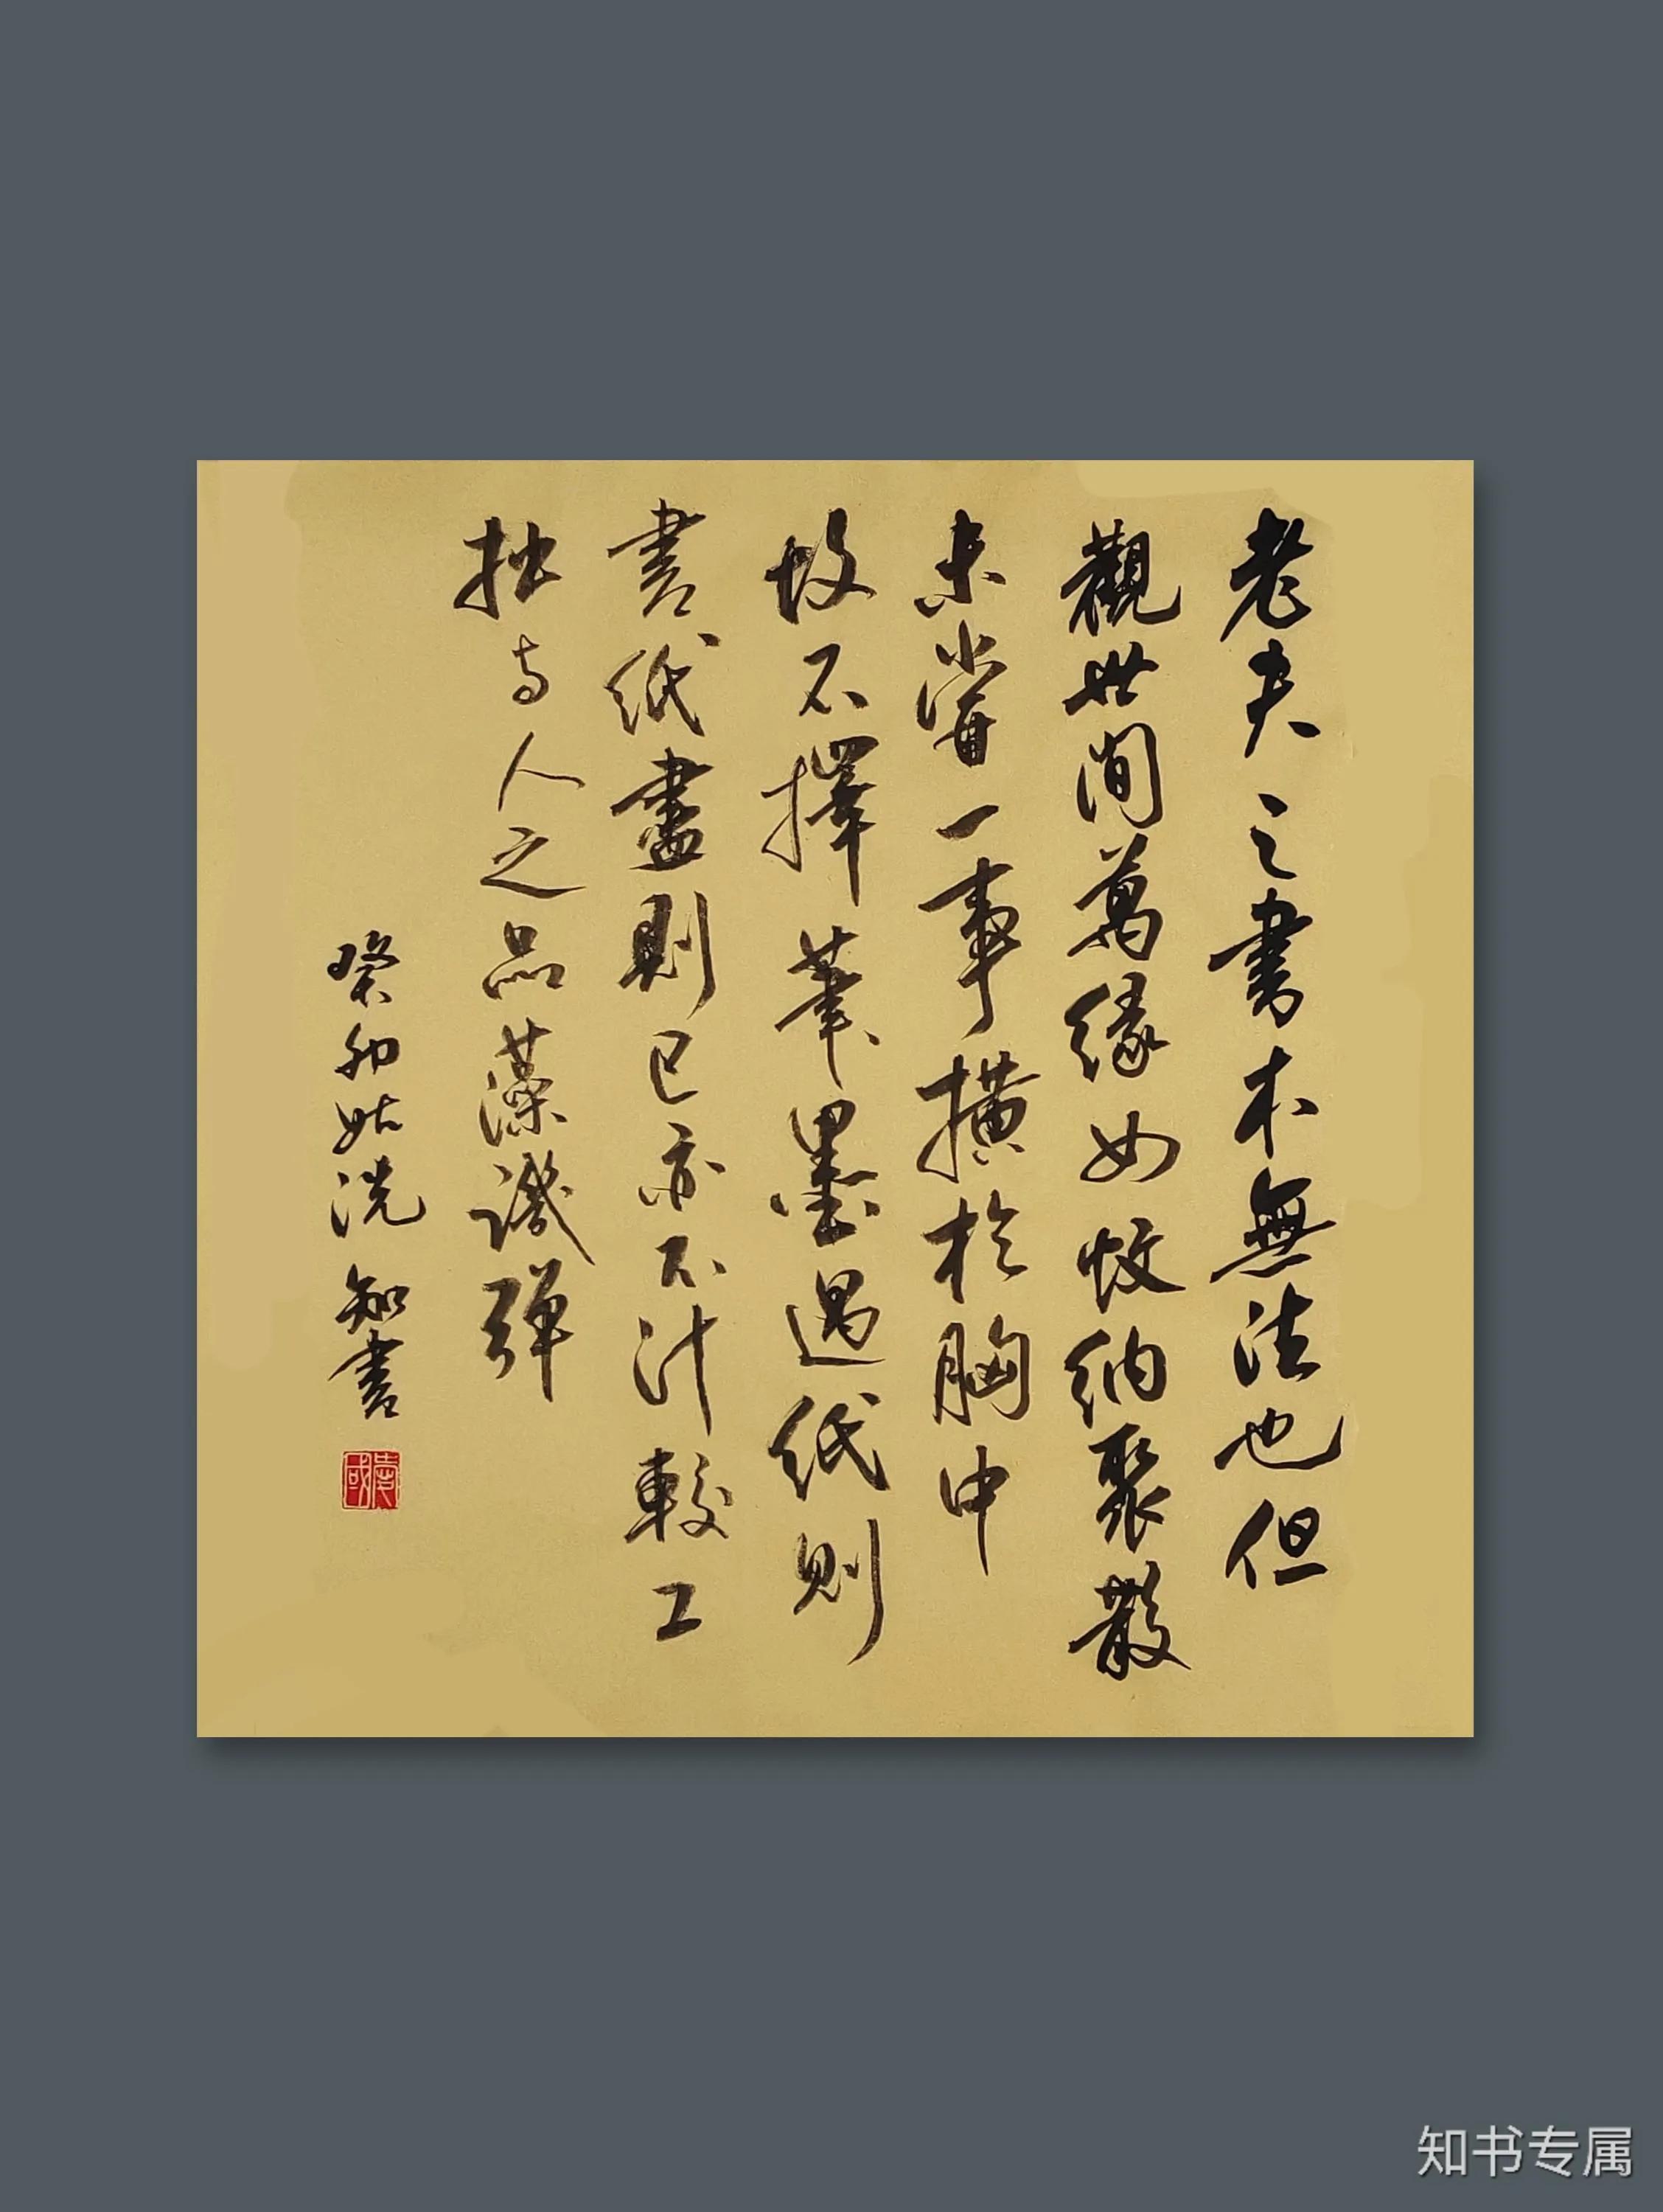 老夫之書本無法也但
觀世間萬緣如蚊蚋聚散
未嘗一事橫於胸中
故不擇筆墨遇紙則
書紙盡則已亦不計較工
拙与人之品藻譏彈
癸卯姑洗 知書
知书专属